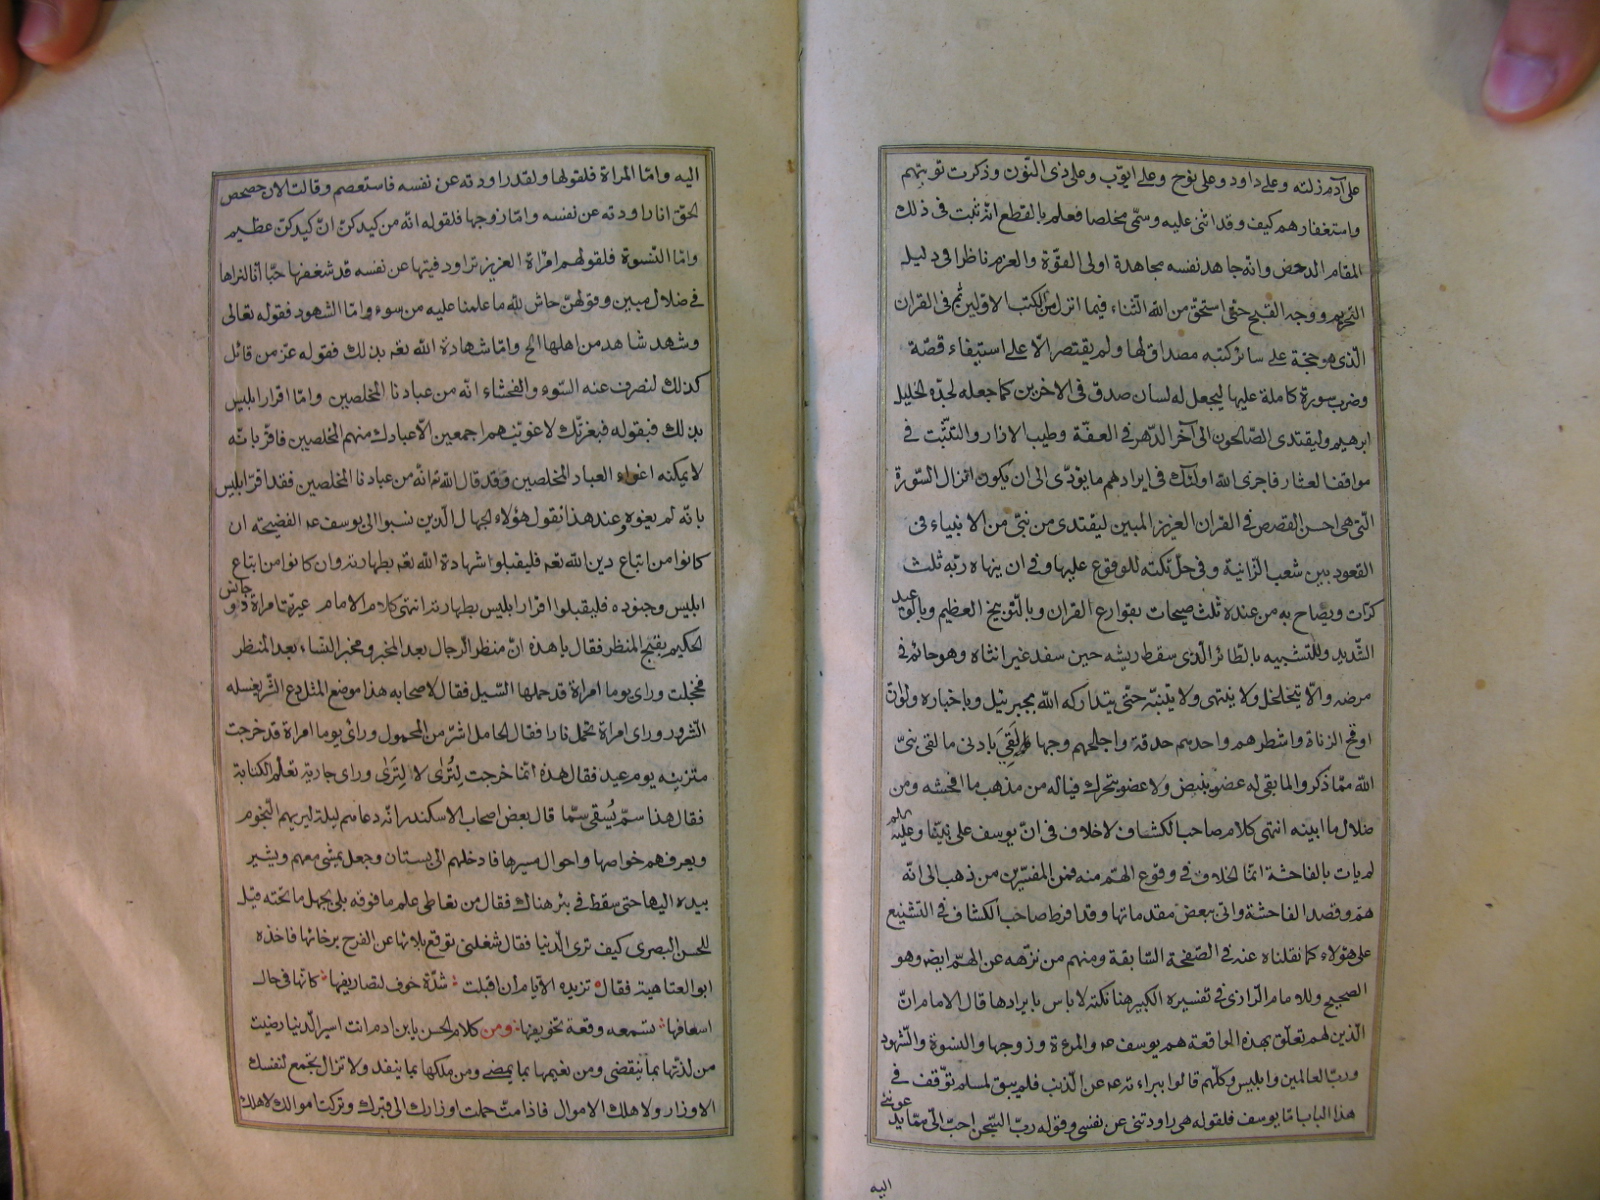 على آدم زلته وعلى داود وعلى نوح وعلى ايوب وعلى ذى النون وذكرت توبتهم
واستغفارهم كيف وقد اثنى عليه وسمى مخلصا فعلم بالقطع انه ثبت فى ذلك
المقام الدحض وانه جاهد نفسه مجاهدة اولى القوة والعزم ناظرا فى دليل
التحريم ووجه القبح حتى استحق من الله الثناء فيما انزل من الكتب الاولين ثم فى القران
الذى هو حجة على سائر كتبه مصداق لها ولم يقتصر الا على استيفاء قصة
وضرب سورة كاملة عليها ليجعل له لسان صدق فى الاخرين كما جعله لجده الخليل
ابرهيم وليقتدى الصالحون الى آخر الدهر فى العفة وطيب الازار والتثبت فى
مواقف العثار فاخزى الله اولئك فى ايرادهم ما يؤدى الى ان يكون انزال السورة
التى هى احسن القصص فى القران العزيز المبين ليقتدى من نبى من الانبياء فى
القعود بين شعب الزانية وفى حل تكته للوقوع عليها وفى ان ينهاه ربه ثلث
كرات ويصاح به من عنده ثلث صيحات بقوارع القران وبالتوبيخ العظيم وبالوعيد
الشديد وللتشبيه بالطائر الذى سقط ريشه حين سفد غير انثاه وهو جاثم فى
مرضه ولا يتخلخل ولا ينتهى ولا يتنبه حتى يتداركه الله بجبرئيل وباخباره ولوان
اوقح الزناة واشطرهم واحدهم حدقة واجلحهم وجها لقى بادنى ما لقى نبى
الله مما ذكروا لما بقى له عضو ينبض ولا عضو يتحرك فياله من مذهب ما افحشه ومن
ضلال ما ابينه انتهى كلام صاحب الكشاف لا خلاف فى ان يوسف على نبينا وعليه السلم
لم يات بالفاحشة انما الخلاف فى وقوع الهم منه فمن المفسرين من ذهب الى انه
هم وقصد الفاحشة واتى ببعض مقدماتها وقد افرط صاحب الكشاف فى التشنيع
على هؤلاء كما نقلناه عنه فى الصفحة السابقة ومنهم من نزهه عن الهم ايض وهو
الصحيح وللامام الرازى فى تفسيره الكبير هنا نكتة لا باس بايرادها قال الامام ان
الذين لهم تعلق بهذه الواقعة هم يوسف عه والمرءة وزوجها والنسوة والشهود
ورب العالمين وابليس وكلهم قالوا ببراءته عه عن الذنب فلم يبق لمسلم توقف فى
هذا الباب اما يوسف فلقوله هى راودتنى عن نفسى وقوله رب السجن احب الى مما يدعوننى
اليه
اليه واما المراة فلقولها ولقد راودته عن نفسه فاستعصم وقالت الان حصحص
الحق انا راودته عن نفسه واما زوجها فلقوله انه من كيدكن ان كيدكن عظيم
واما النسوة فلقولهم امراة العزيز تراود فتيها عن نفسه قد شغفها حبا انا لنراها
فى ضلال مبين وقولهن حاش لله ما علمنا عليه من سوء واما الشهود فقوله تعالى
وشهد شاهد من اهلها الخ واما شهادة الله تعه بذلك فقوله عز من قائل
كذلك لنصرف عنه السوء والفحشاء انه من عبادنا المخلصين واما اقرار ابليس
بذلك فبقوله فبعزتك لاغوينهم اجمعين الا عبادك منهم المخلصين فاقر بانه
لا يمكنه اغواء العباد المخلصين وقد قال الله تع انه من عبادنا المخلصين فقد اقر ابليس
بانه لم يغوه وعند هذا نقول هؤلاء الجهال الذين نسبوا الى يوسف عه الفضيحة ان
كانوا من اتباع دين الله تعه فليقبلوا شهادة الله تعه بطهارته وان كانوا من اتباع
ابليس وجنوده فليقبلوا اقرار ابليس بطهارته انتهى كلام الامام عيرت امراة ديوجانس
الحكيم بقبح المنظر فقال يا هذه ان منظر الرجال بعد المخبر ومخبر النساء بعد المنظر
فخجلت وراى يوما امراة قد حملها السيل فقال لاصحابه هذا موضع المثل دع الشر يغسله
الشرور وراى امراة تحمل نارا فقال الحامل اشر من المحمول وراى يوما امراة قد خرجت
متزينه يوم عيد فقال هذه انما خرجت لتُرى لا لتَرى وراى جارية تعلم الكتابة
فقال هذا سم يُسقى سما قال بعض اصحاب الاسكندر انه دعاهم ليلة ليريهم النجوم
ويعرفهم خواصها واحوال مسيرها فادخلهم الى بستان وجعل يمشى معهم ويشير
بيده اليها حتى سقط فى بئر هناك فقال من تعاطى علم ما فوقه بلى بجهل ما تحته قيل
للحسن البصرى كيف ترى الدنيا فقال شغلنى توقع بلائها عن الفرح برخائها فاخذه
ابو العتاهية فقال تزيده الايام ان اقبلت شدة خوف لتصاريفها كانها فى حال
اسعافها تسمعه وقعة تخويفها ومن كلام الحسن يا بن ادم انت اسير الدنيا رضيت
من لذتها بما ينقضى ومن نعيمها بما يمضى ومن ملكها بما ينفد ولا تزال تجمع لنفسك
الاوزار ولاهلك الاموال فاذا مت حملت اوزارك الى قبرك وتركت اموالك لاهلك